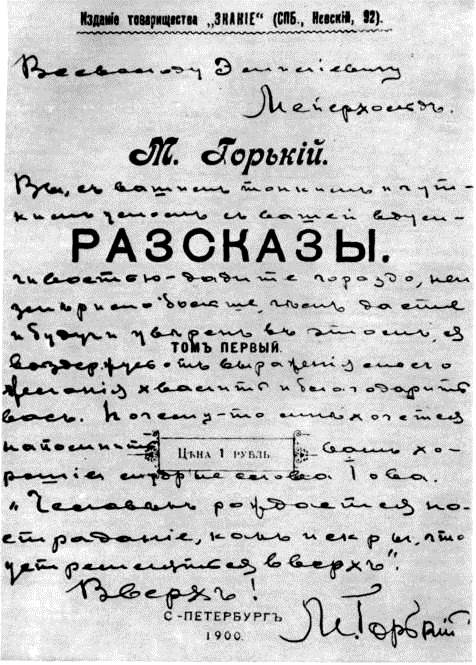 Изданіе товарищества „ЗНАНІЕ“ (СПБ., Невскій, 92).
Всеволоду Эмиліевичу
Мейерхольдъ.
М. Горькій.
Вы, съ вашимъ тонкимъ и чут-
кимъ умомъ, съ вашей вдум-
РАЗСКАЗЫ.
чивостью - дадите гораздо, неи-
змѣримо больше, чѣмъ даете
и будучи увѣренъ въ этомъ, я
ТОМЪ ПЕРВЫЙ.
воздержусь отъ выраженія моего
желанія хвалить и благодарить
васъ. Почему-то мнѣ хочется
напомнить вамъ хо-
ЦѢНА 1 РУБЛЬ
рошія слова Іова.
„Человѣкъ рождается на
страданіе, какъ искры, что
устремляться вверхъ“.
Вверхъ!
С-ПЕТЕРБУРГЪ
1900.
М. Горькій